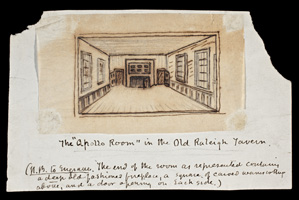 The "Apollo Room" in the Old Raleigh Tavern.
(N.B. To Engraver. The end of the room as represented contains
a deep old fashioned fireplace, a square of carved wainscotting
above, and a door opening on each side.)